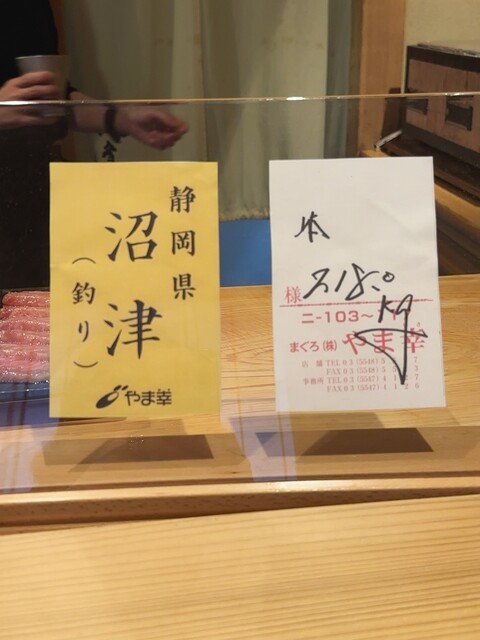 静岡県
沼津
（釣り）
やま幸
本
様
218.0
kg
ニ-103〜
まぐろ(株) やま幸
店舗 TEL 03 (5548) 5
FAX 03 (5548) 5
事務所 TEL 03 (5547) 4
FAX 03 (5547) 4 1 2 6